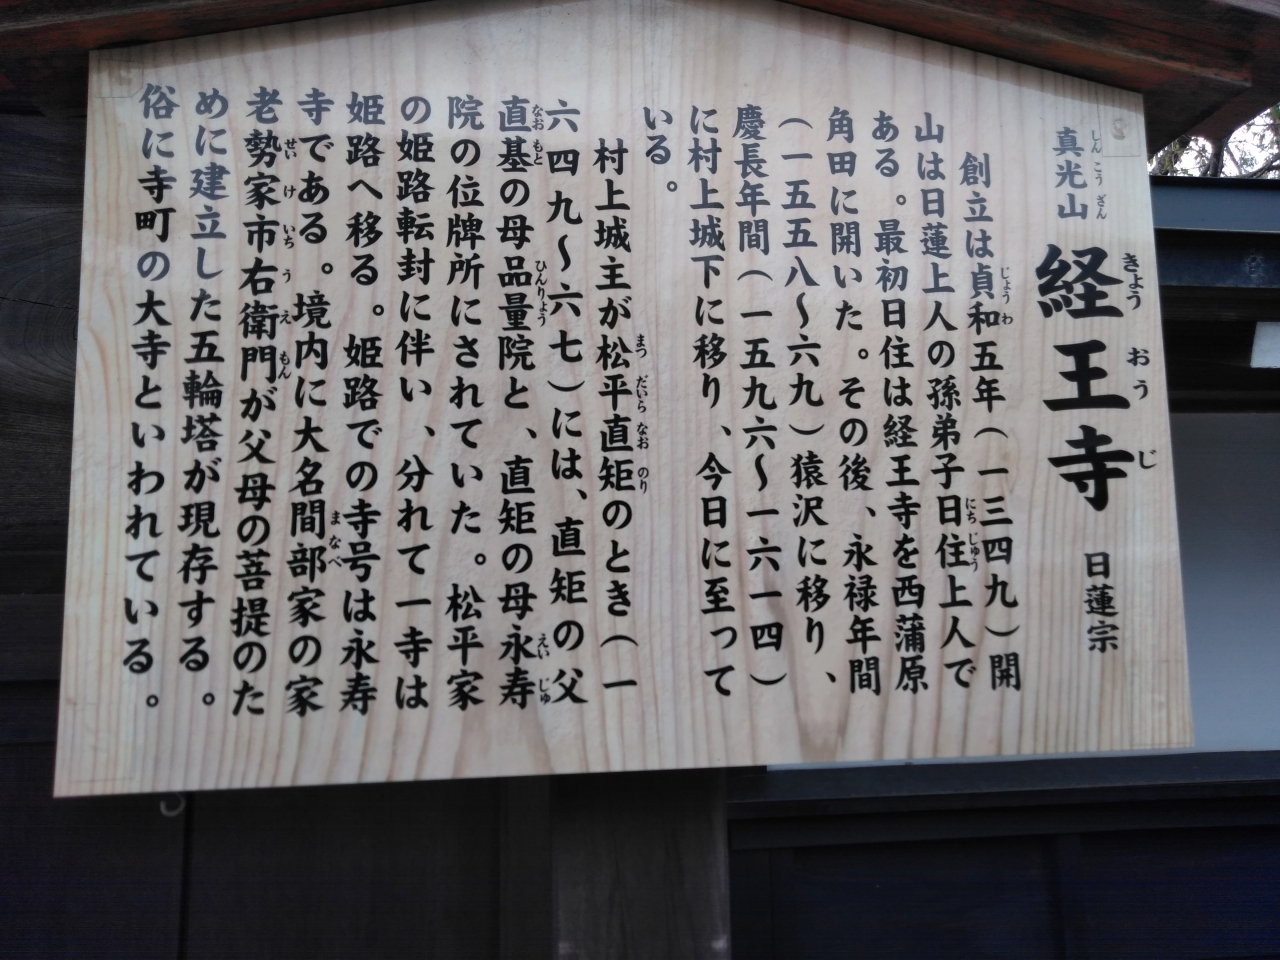 真光山 経王寺 日蓮宗
しんこうざん きょうおうじ
創立は貞和五年(一三四九)開
じょうわ
山は日蓮上人の孫弟子日住上人で
にちじゅう
ある。最初日住は経王寺を西蒲原
角田に開いた。その後、永禄年間
(一五五八〜六九)猿沢に移り、
慶長年間(一五九六〜一六一四)
に村上城下に移り、今日に至って
いる。
村上城主が松平直矩のとき(一
まつだいらなおのり
六四九〜六七)には、直矩の父
直基の母品量院と、直矩の母永寿
なおもと ひんりょう えいじゅ
院の位牌所にされていた。松平家
の姫路転封に伴い、分れて一寺は
姫路へ移る。姫路での寺号は永寿
寺である。境内に大名間部家の家
まなべ
老勢家市右衛門が父母の菩提のた
せいけいちうえもん
めに建立した五輪塔が現存する。
俗に寺町の大寺といわれている。